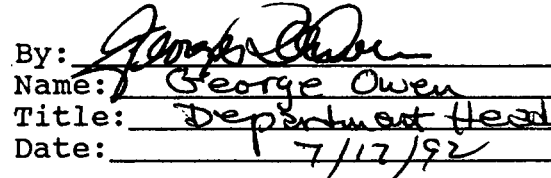 By:
Name: George Owen
Title: Department Head
Date: 7/17/92